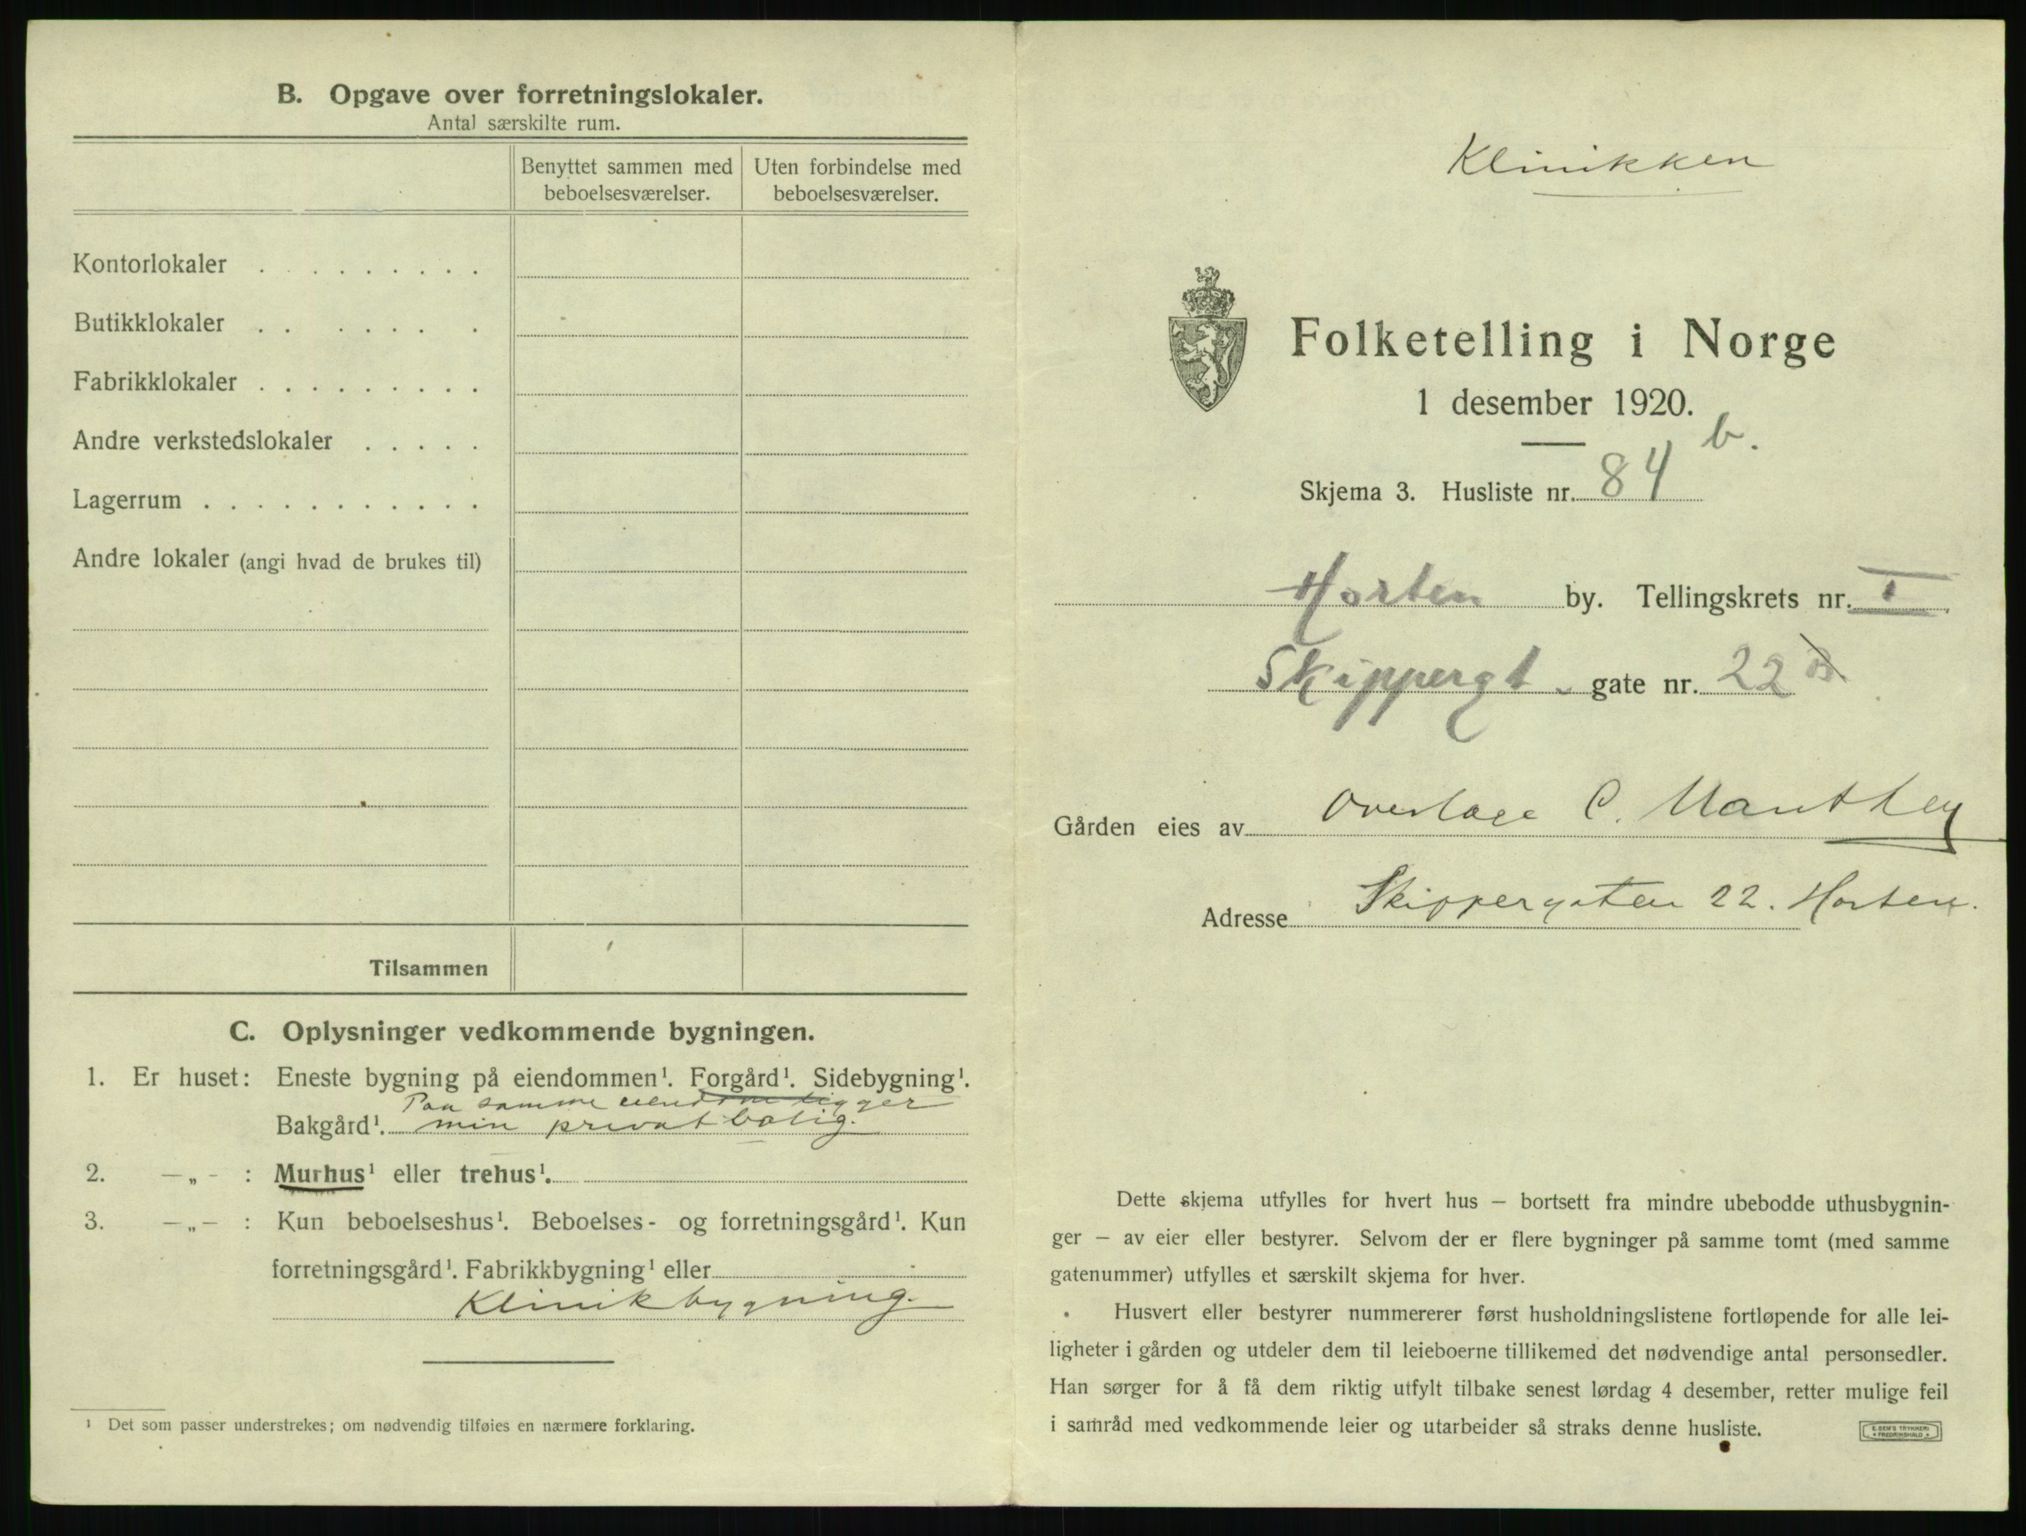 B. Opgave over forretningslokaler.
Antal særskilte rum.
Benyttet sammen med beboelsesværelser.
Uten forbindelse med beboelsesværelser.
Kontorlokaler . . . . . . . . .
Butikklokaler . . . . . . .
Fabrikklokaler . . . . . . . . .
Andre verkstedslokaler . . . . .
Lagerrum . . . . . . . . . . .
Andre lokaler (angi hvad de brukes til)
Tilsammen
C. Oplysninger vedkommende bygningen.
1. Er huset: Eneste bygning på eiendommen¹. Forgård¹. Sidebygning¹.
Paa samme eiendom ligger
Bakgård¹. min privatbolig.
2. —„- : Murhus¹ eller trehus¹.
3. —„— : Kun beboelseshus¹. Beboelses- og forretningsgård¹. Kun
forretningsgård¹. Fabrikkbygning¹ eller
Klinikbygning.
¹ Det som passer understrekes; om nødvendig tilføies en nærmere forklaring.
Klinikken
Folketelling i Norge
1 desember 1920.
Skjema 3. Husliste nr. 84 b.
Horten by. Tellingskrets nr. I
Skippergt. gate nr. 22 B
Gården eies av Overlæge C. Manthey
Adresse Skippergaten 22. Horten.
Dette skjema utfylles for hvert hus — bortsett fra mindre ubebodde uthusbygnin-
ger — av eier eller bestyrer. Selvom der er flere bygninger på samme tomt (med samme
gatenummer) utfylles et særskilt skjema for hver.
Husvert eller bestyrer nummererer først husholdningslistene fortløpende for alle lei-
ligheter i gården og utdeler dem til leieboerne tillikemed det nødvendige antal personsedler.
Han sørger for å få dem riktig utfylt tilbake senest lørdag 4 desember, retter mulige feil
i samråd med vedkommende leier og utarbeider så straks denne husliste.
E. SEM'S TRYKKERI
FREDRIKSHALD